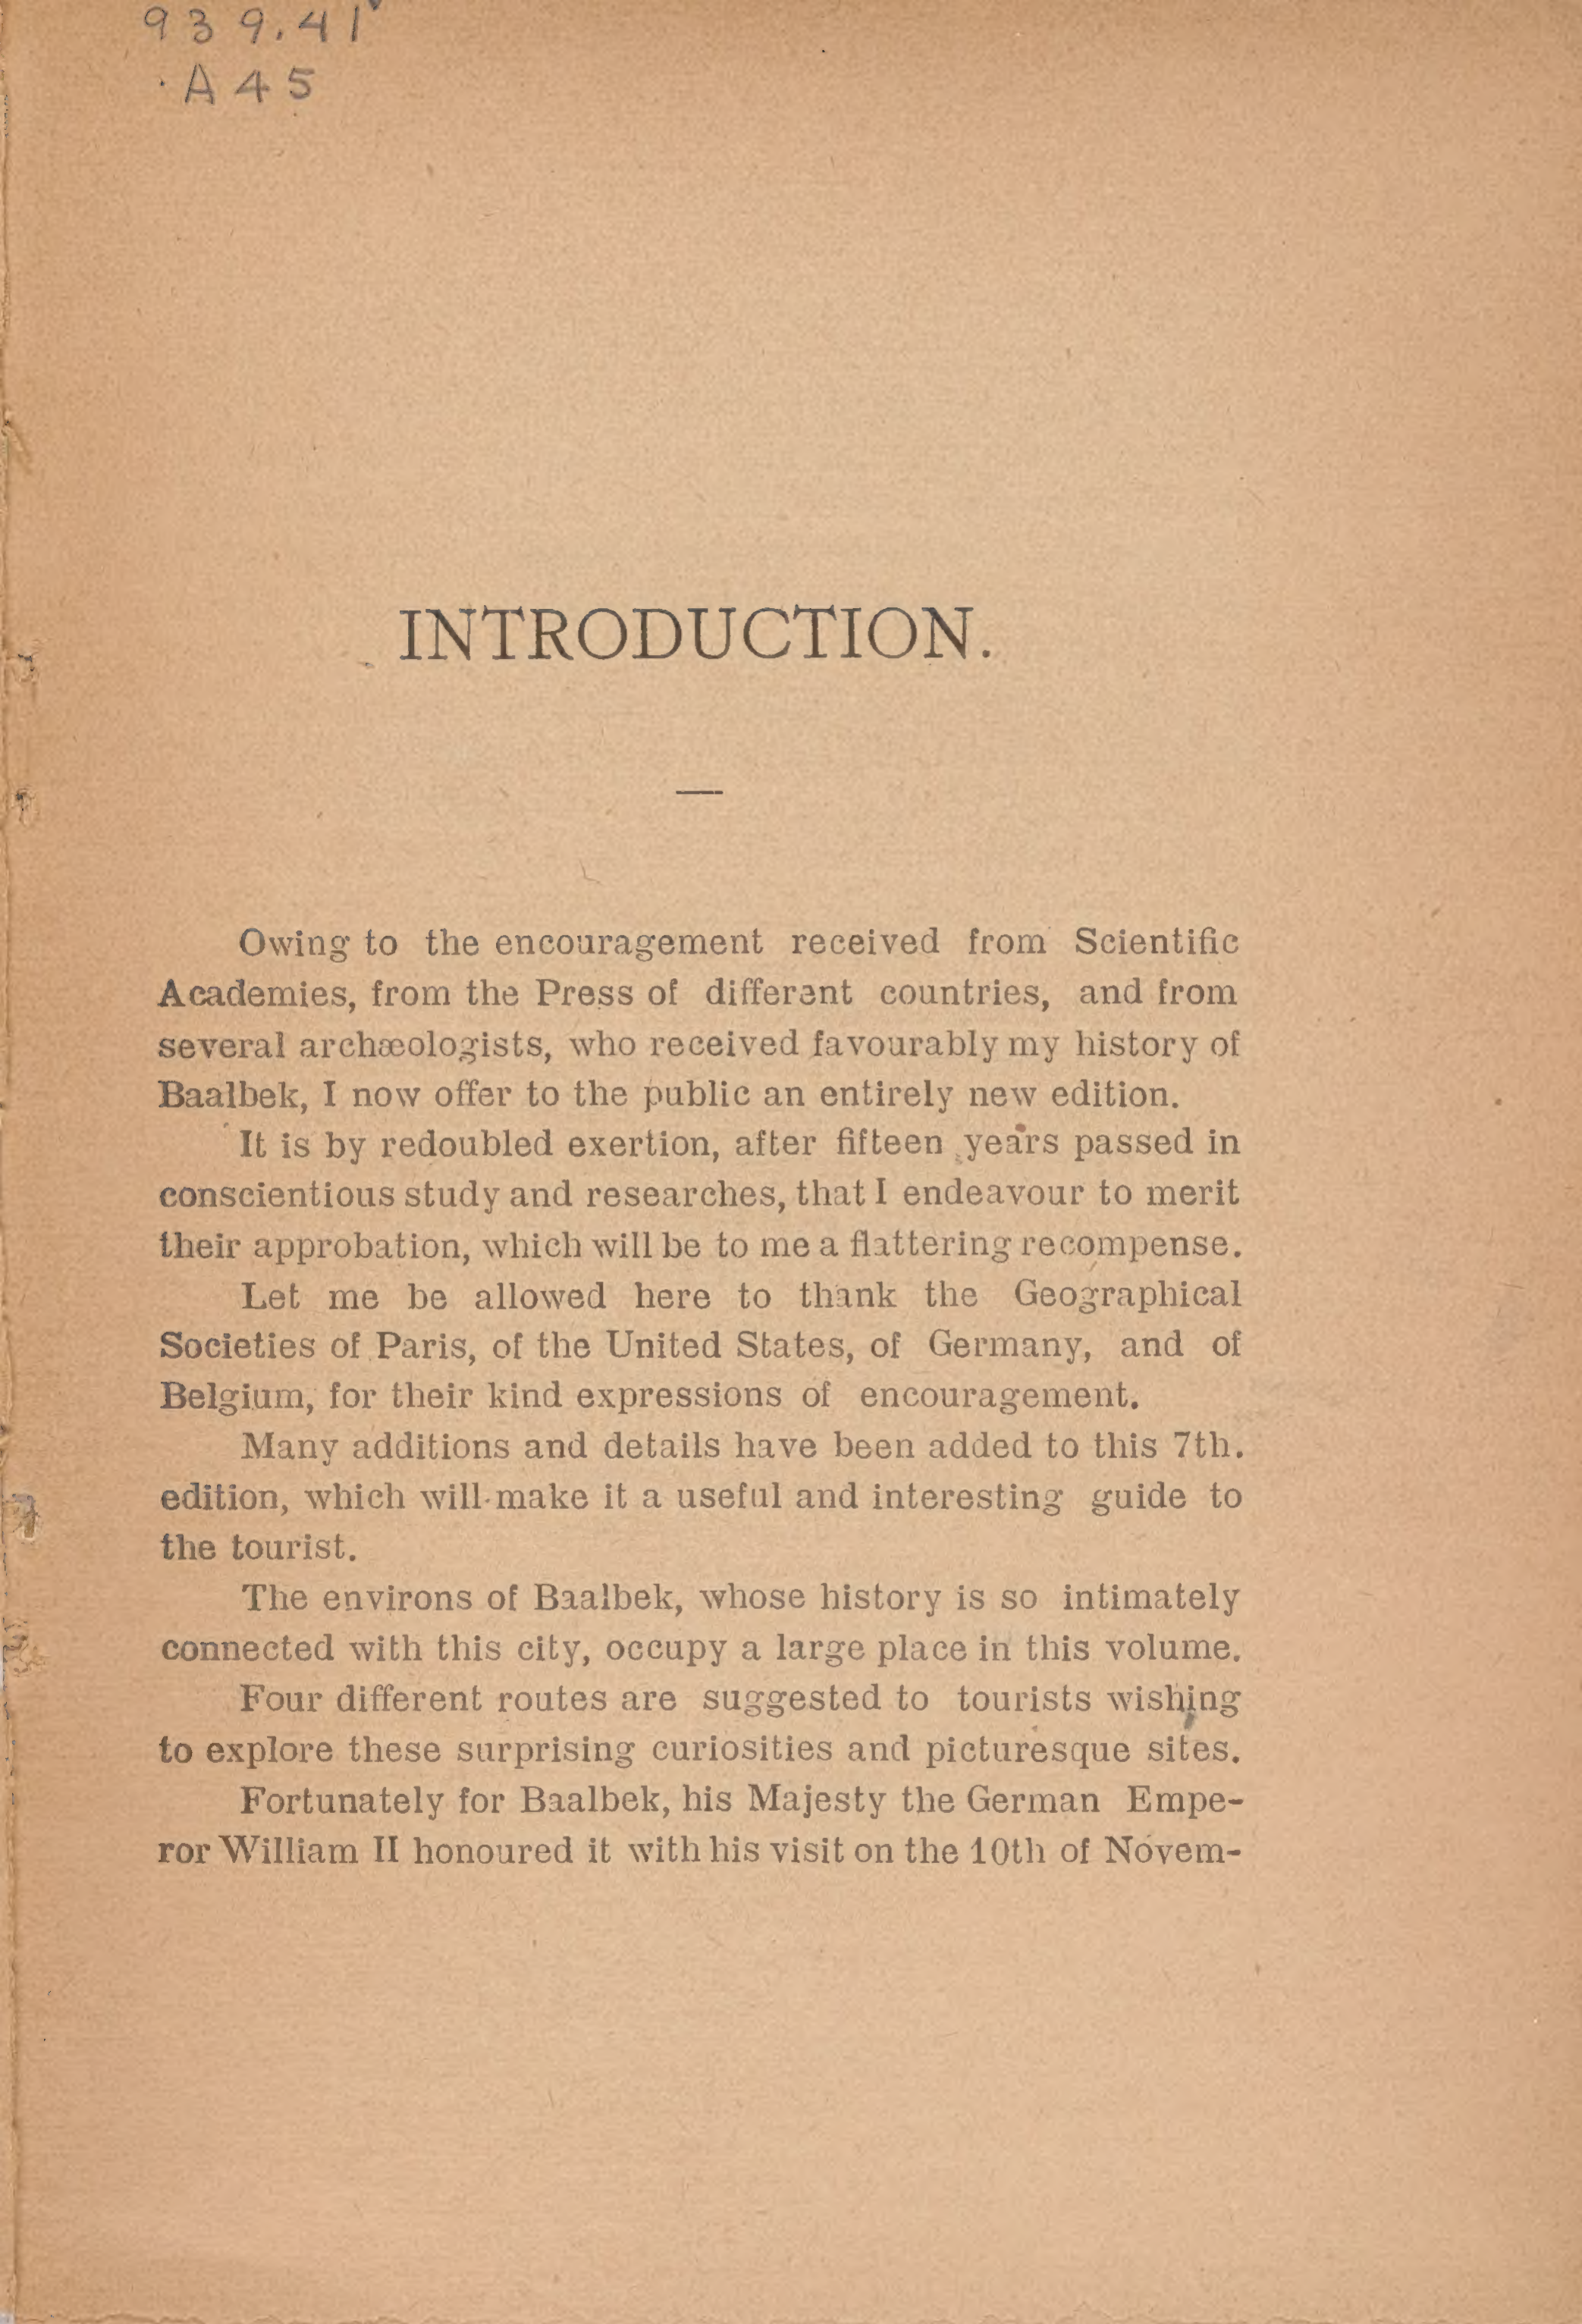 939.41
.A45
INTRODUCTION.
Owing to the encouragement received from Scientific
Academies, from the Press of different countries, and from
several archæologists, who received favourably my history of
Baalbek, I now offer to the public an entirely new edition.
It is by redoubled exertion, after fifteen years passed in
conscientious study and researches, that I endeavour to merit
their approbation, which will be to me a flattering recompense.
Let me be allowed here to thank the Geographical
Societies of Paris, of the United States, of Germany, and of
Belgium, for their kind expressions of encouragement.
Many additions and details have been added to this 7th.
edition, which will make it a useful and interesting guide to
the tourist.
The environs of Baalbek, whose history is so intimately
connected with this city, occupy a large place in this volume.
Four different routes are suggested to tourists wishing
to explore these surprising curiosities and picturesque sites.
Fortunately for Baalbek, his Majesty the German Empe-
ror William II honoured it with his visit on the 10th of Novem-